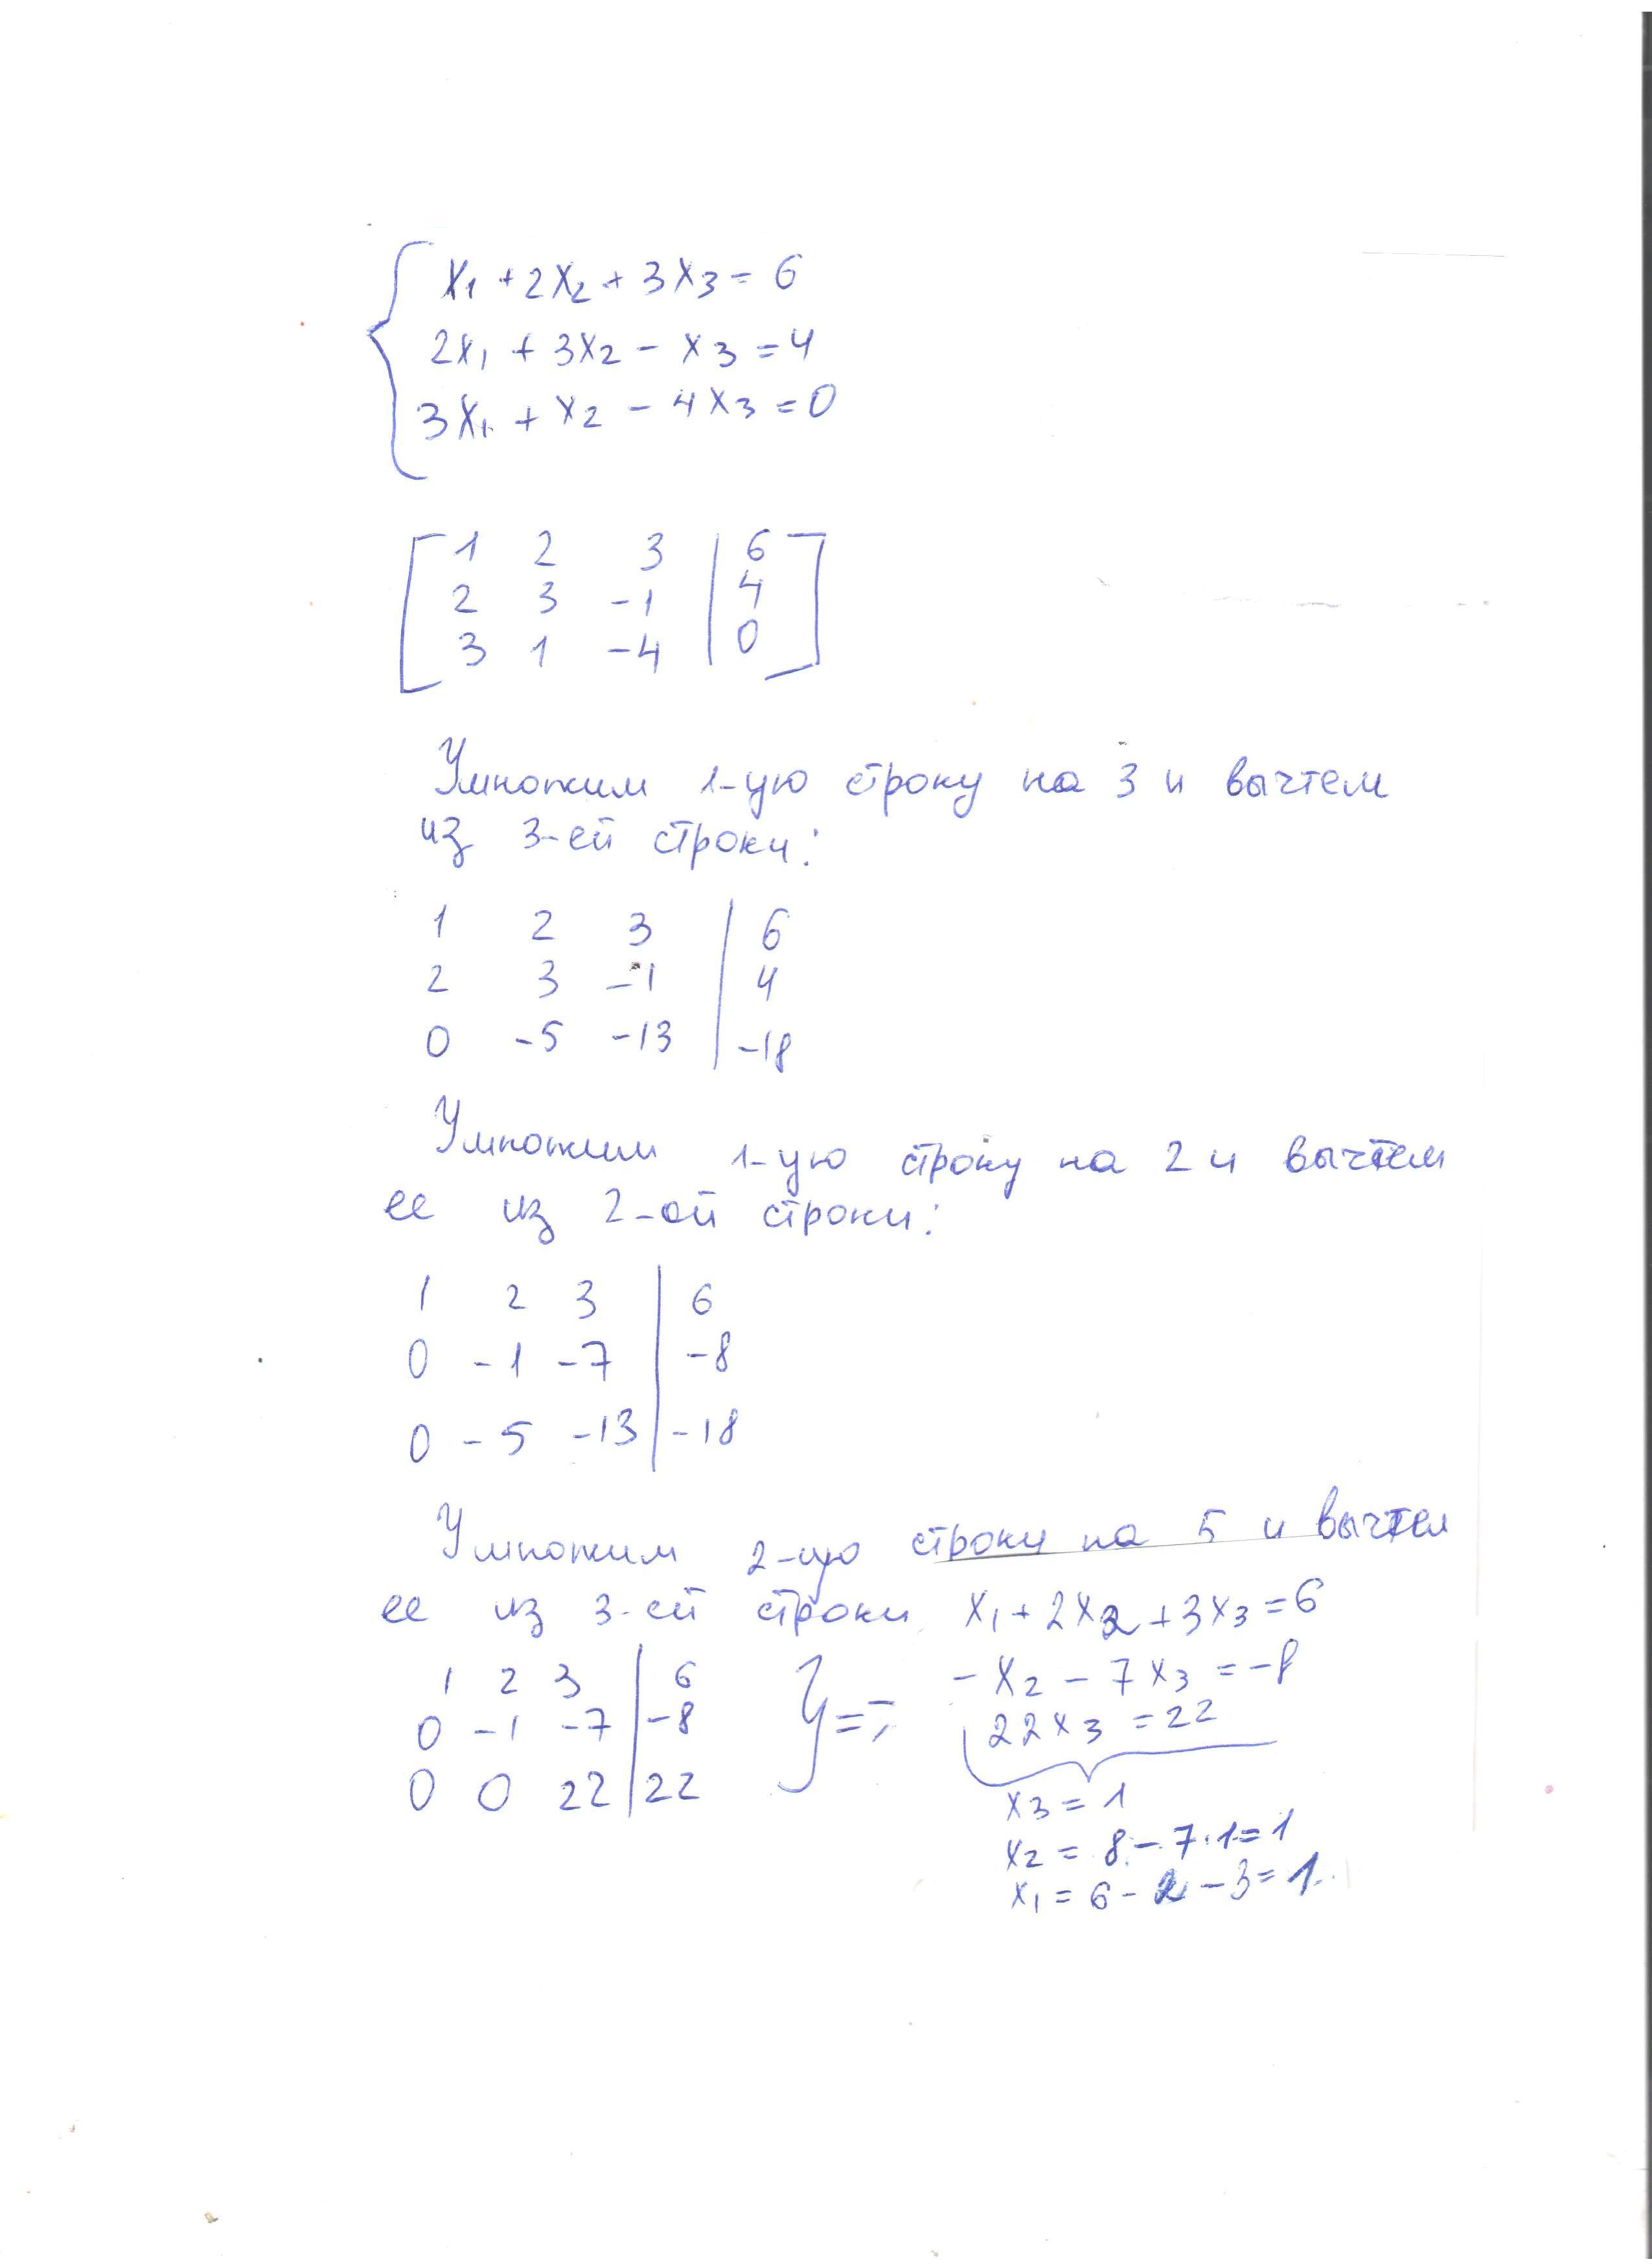 x₁ + 2x₂ + 3x₃ = 6
2x₁ + 3x₂ - x₃ = 4
3x₁ + x₂ - 4x₃ = 0
1 2 3 | 6
2 3 -1 | 4
3 1 -4 | 0
Умножим 1-ую строку на 3 и вычтем
из 3-ей строки:
1 2 3 | 6
2 3 -1 | 4
0 -5 -13 | -18
Умножим 1-ую строку на 2 и вычтем
ее из 2-ой строки:
1 2 3 | 6
0 -1 -7 | -8
0 -5 -13 | -18
Умножим 2-ую строку на 5 и вычтем
ее из 3-ей строки
1 2 3 | 6
0 -1 -7 | -8
0 0 22 | 22
x₁ + 2x₂ + 3x₃ = 6
-x₂ - 7x₃ = -8
22x₃ = 22
x₃ = 1
x₂ = 8 - 7·1 = 1
x₁ = 6 - 2 - 3 = 1